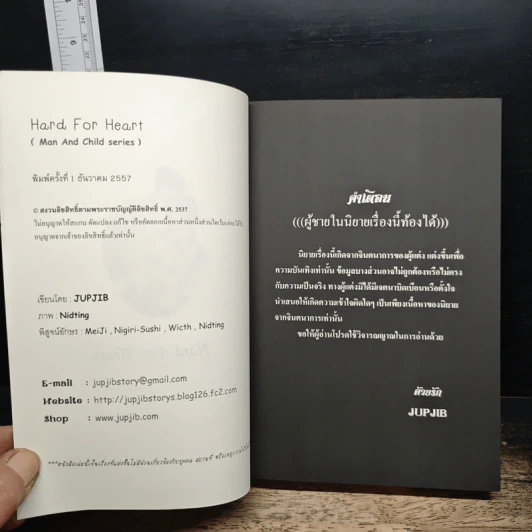 Hard For Heart
( Man And Child series )
พิมพ์ครั้งที่ 1 ธันวาคม 2557
© สงวนลิขสิทธิ์ตามพระราชบัญญัติลิขสิทธิ์ พ.ศ. 2537
ไม่อนุญาตให้สแกน ดัดแปลง แก้ไข หรือคัดลอกเนื้อหาส่วนหนึ่งส่วนใดเว้นแต่จะได้รับ
อนุญาตจากเจ้าของลิขสิทธิ์แล้วเท่านั้น
เขียนโดย : JUPJIB
ภาพ : Nidting
พิสูจน์อักษร : MeiJi , Nigiri-Sushi , Wicth , Nidting
E-mail : jupjibstory@gmail.com
Website : http://jupjibstorys.blog126.fc2.com
Shop : www.jupjib.com
***หนังสือเล่มนี้เป็นเรื่องที่แต่งขึ้นไม่มีส่วนเกี่ยวข้องกับบุคคล สถานที่ หรือเหตุการณ์
คำเตือน
(((ผู้ชายในนิยายเรื่องนี้ท้องได้)))
นิยายเรื่องนี้เกิดจากจินตนาการของผู้แต่ง แต่งขึ้นเพื่อ
ความบันเทิงเท่านั้น ข้อมูลบางส่วนอาจไม่ถูกต้องหรือไม่ตรง
กับความเป็นจริง ทางผู้แต่งมิได้มีเจตนาบิดเบือนหรือตั้งใจ
นำเสนอให้เกิดความเข้าใจผิดใดๆ เป็นเพียงเนื้อหาของนิยาย
จากจินตนาการเท่านั้น
ขอให้ผู้อ่านโปรดใช้วิจารณญาณในการอ่านด้วย
ด้วยรัก
JUPJIB
6